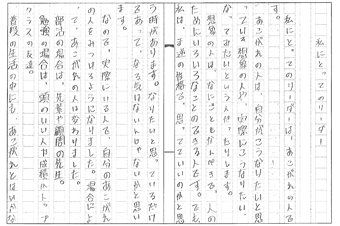 私にとってのリーダー
私にとってのリーダーは、あこがれの人で
す。
あこがれの人は、自分がこうなりたいと思
っている想像の人や、実際にこうなりたい
なってみたいという人が
想像の人は、なにごともかんぺきで、人の
ためにいろいろなことのできる人です。でも
私は、ま逆の性格で、思っていていいのかと思
う時があります。なりたいと思っているだけ
であって、なる気はないんじゃないかと思い
ます。
なので、実際にいる人で、自分のあこがれ
の人をみつけるようになりました。場合によ
って、あこがれの人は変わりました。
部活の場合は、先輩や顧問の先生。
勉強の場合は、頭のいい人や成績がトップ
クラスの友達。
普段の生活の中にも、あこがれとはいかな